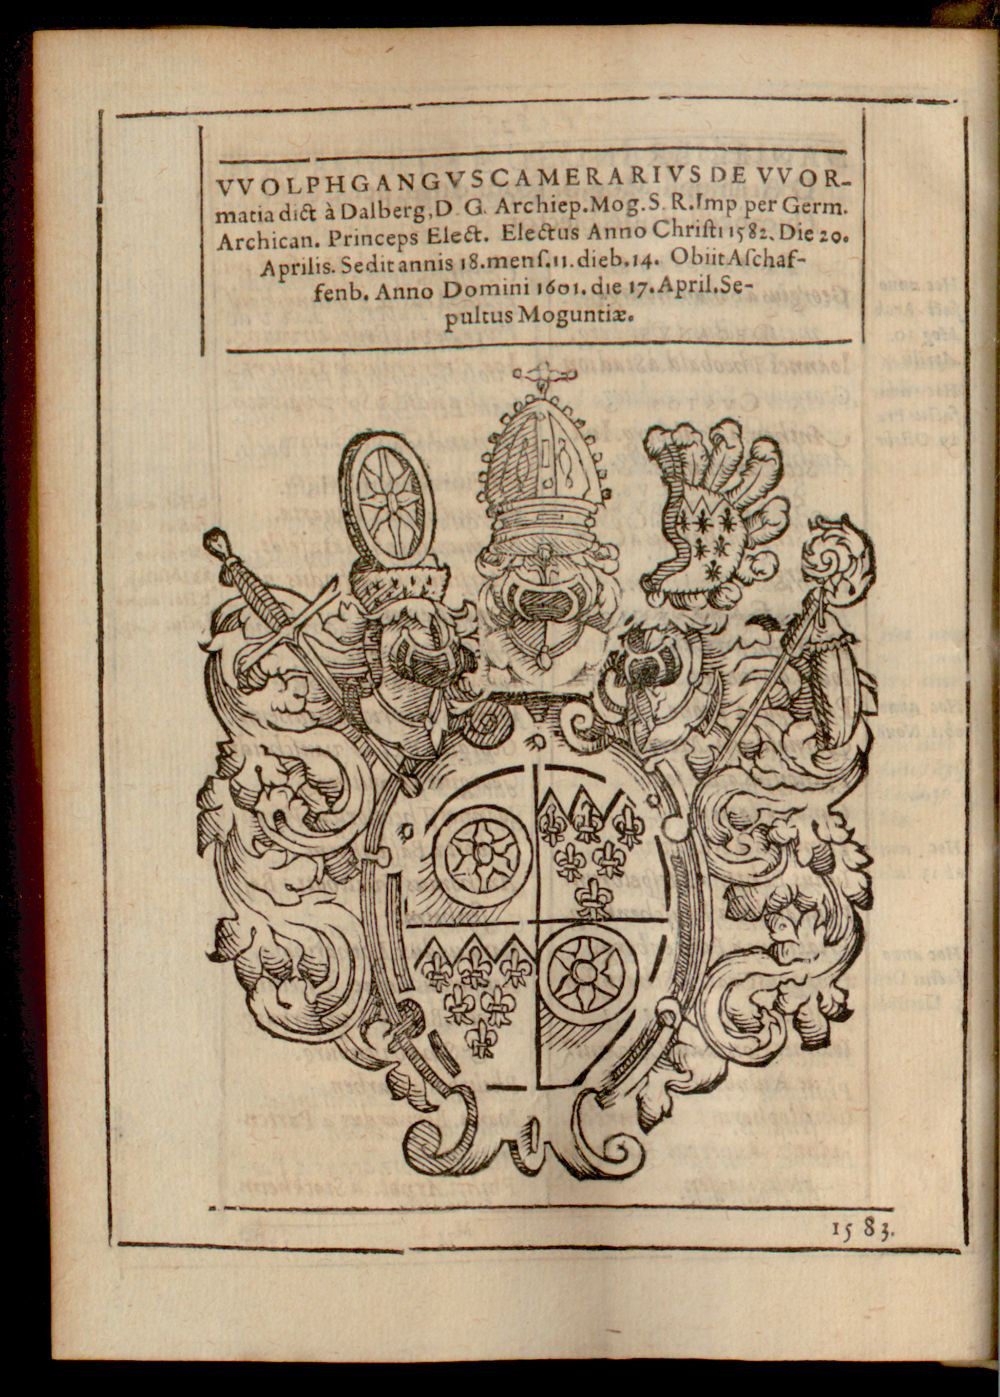 VVOLPHGANGVS CAMERARIVS DE VVOR-
matia dict à Dalberg, D. G. Archiep. Mog. S. R. Imp per Germ.
Archican. Princeps Elect. Electus Anno Chriſti 1582. Die 20.
Aprilis. Sedit annis 18. menſ. 11. dieb. 14. Obiit Aſchaf-
fenb. Anno Domini 1601. die 17. April. Se-
pultus Moguntiæ.
1583.